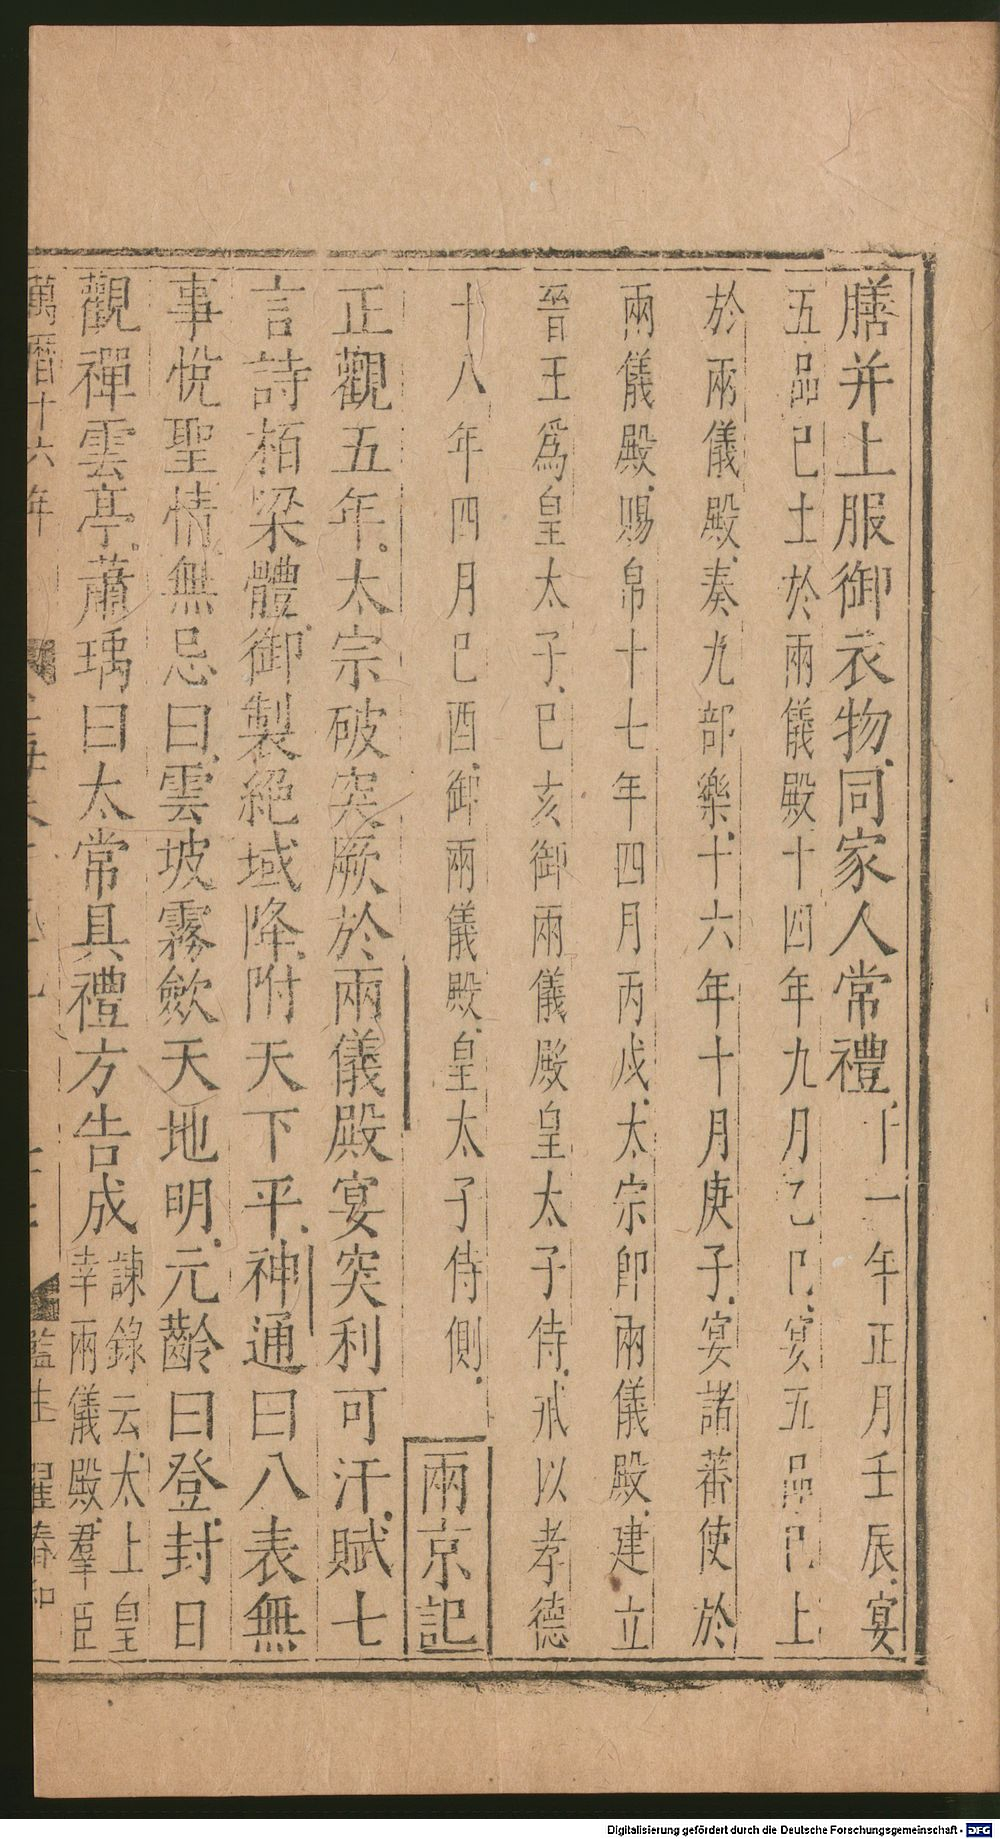 膳并上服御衣物同家人常禮十一年正月壬辰宴
五品已上於兩儀殿十四年九月乙巳宴五品已上
於兩儀殿奏九部樂十六年十月庚子宴諸蕃使於
兩儀殿賜帛十七年四月丙戌太宗卽兩儀殿建立
晉王爲皇太子已亥御兩儀殿皇太子侍戒以孝德
十八年四月已酉御兩儀殿皇太子侍側 兩京記
正觀五年太宗破突厥於兩儀殿宴突利可汗賦七
言詩栢梁體御製絕域降附天下平神通曰八表無
事悅聖情無忌曰雲坡霧歛天地明元齡曰登封日
觀禪雲亭蕭瑀曰太常具禮方告成諫錄云太上皇
幸兩儀殿羣臣
萬曆十六年
監生
Digitalisierung gefördert durch die Deutsche Forschungsgemeinschaft - DFG